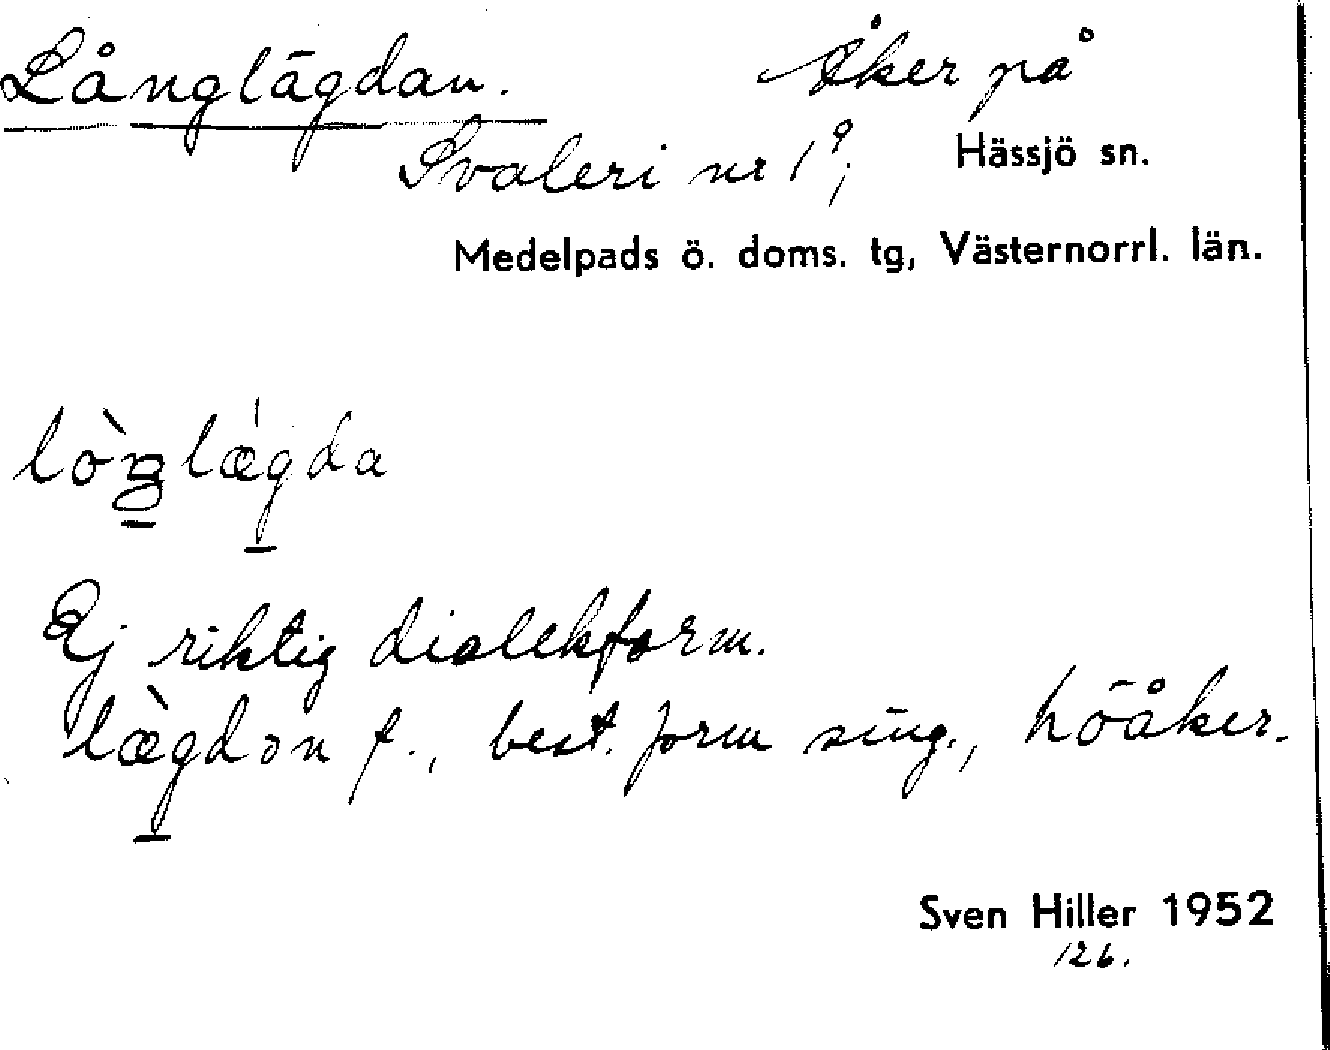 Långlägdan. Åker på
Svaleri nr 1⁹; Hässjö sn.
Medelpads ö. doms. tg, Västernorrl. län.
lòŋlǽgda
Ej riktig dialekform.
lægdɔn f., best. form sing., höåker.
Sven Hiller 1952
126.